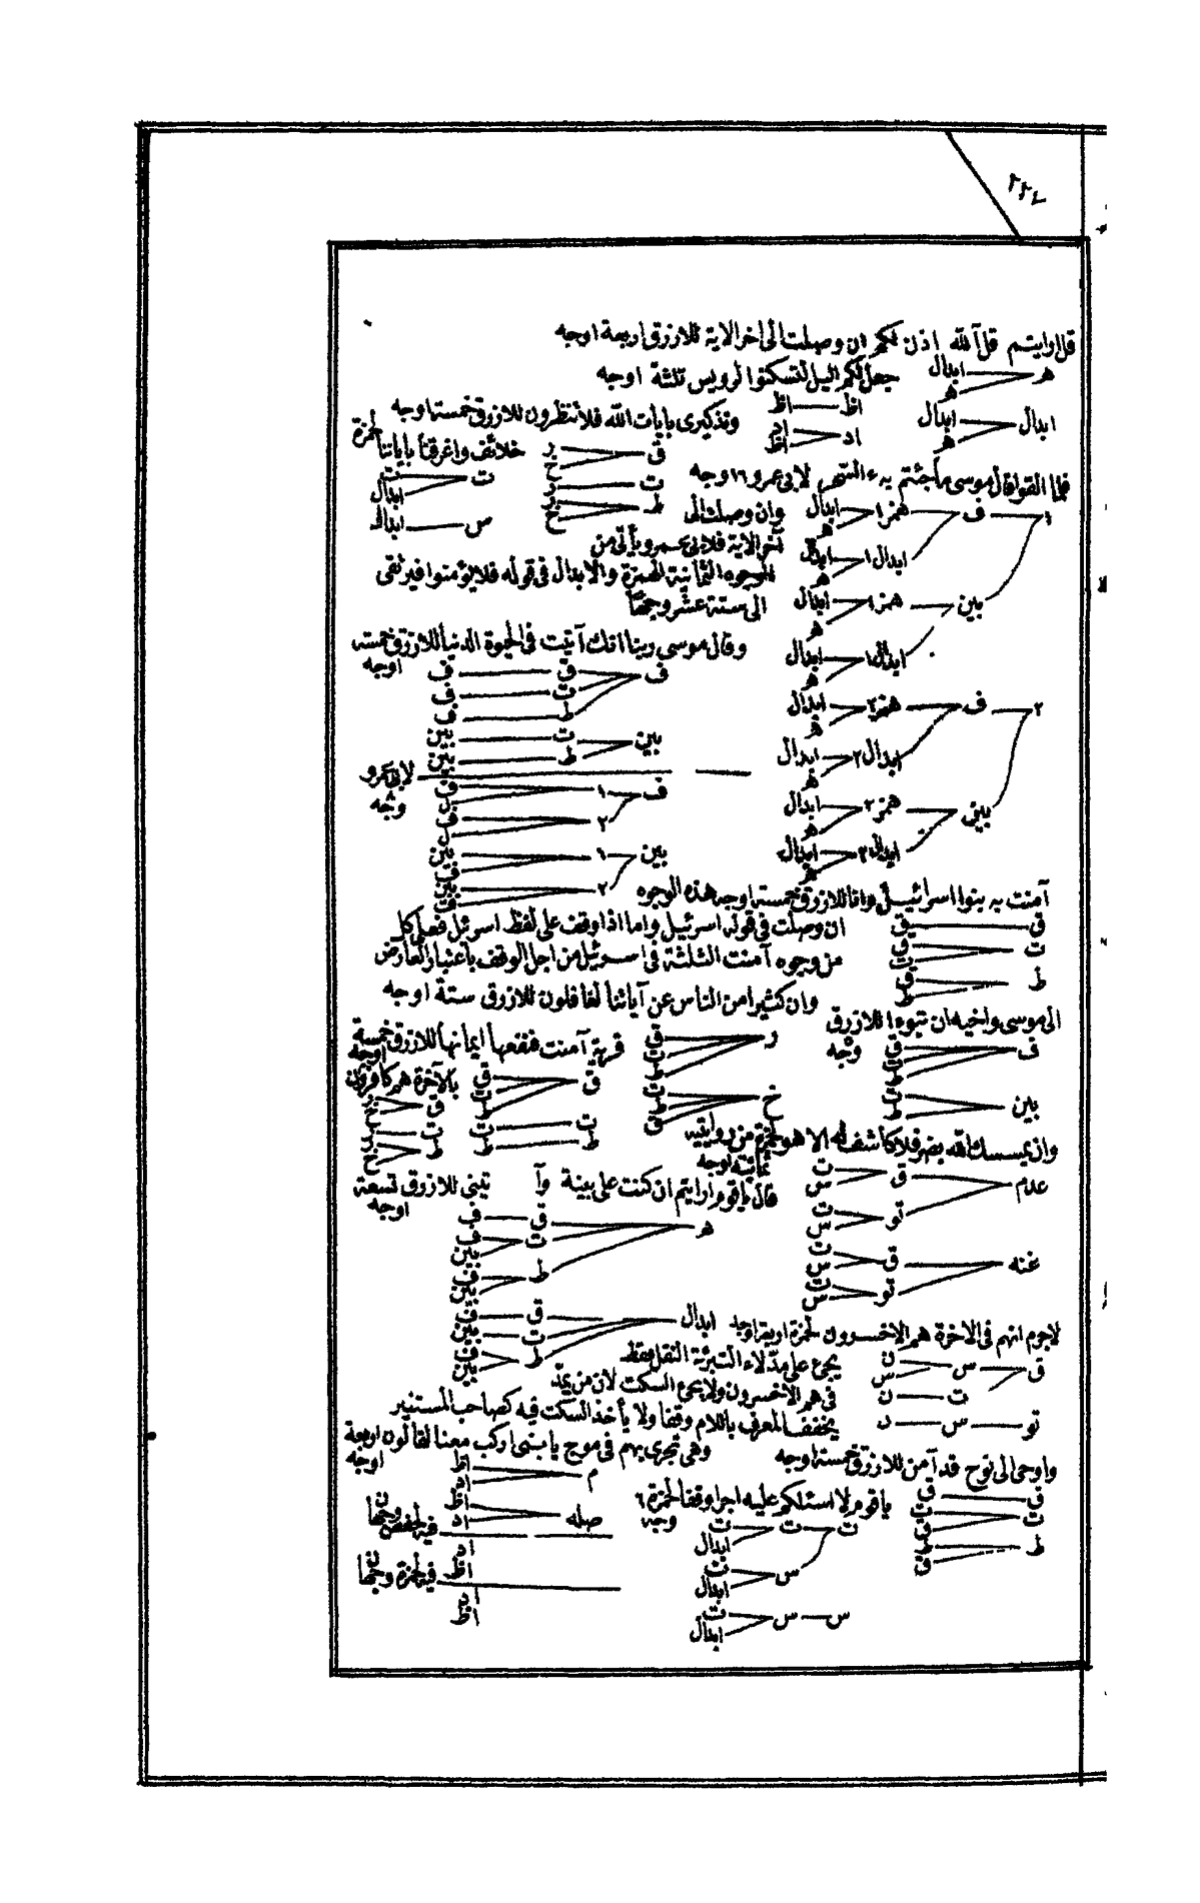 ٢٢٧
قل ارايتم قل آلله اذن لكم ان وصلت الى اخر الاية للازرق اربعة اوجه
هـ ابدال هـ
ابدال ابدال هـ
جعل لكم اليل لتسكنوا لرويس ثلثة اوجه
اظ اظ
اد اد اظ
وتذكيرى بايات الله فلا تنظرون للازرق خمسة اوجه
ق ر خ
ت ر
ط ر خ
خلائف واغرقنا باياتنا لحمزة
ت ت ابدال
س ابدال
فلما القوا قال موسى ما جئتم به ء السحر لابى عمرو ١٦ وجه
١ ف همز١ ابدال هـ
ابدال١ ابدال هـ
بين همز١ ابدال هـ
ابدال١ ابدال هـ
٢ ف همز٢ ابدال هـ
ابدال٢ ابدال هـ
بين همز٢ ابدال هـ
ابدال٢ ابدال هـ
وان وصلت الى
آخر الاية فلابى عمرو يأتى من
الوجوه الثمانية الهمزة والابدال فى قوله فلا يؤمنوا فيرتقى
الى ستة عشر وجها
وقال موسى ربنا انك آتيت فى الحيوة الدنيا للازرق خمسة
اوجه
ف ق ف
ت ف
ط ف
بين ت بين
ط بين
لابى عمرو
وجه
ف ١ ف
٢ ف
بين ١ بين ف
٢ بين ف
آمنت به بنوا اسرائيل وانا للازرق خمسة اوجه هذه الوجوه
ق ق
ت ق ت
ط ق ط
ان وصلت فى قوله اسرئيل واما اذا وقف على لفظ اسرئيل فعلى كل
من وجوه آمنت الثلثة فى اسرئيل من اجل الوقف باعتبار العارض
وان كثيرا من الناس عن آياتنا لغافلون للازرق ستة اوجه
ر ق ت ط
خ ت ط ق
الى موسى واخيه ان تبوءا للازرق
وجه
ف ق ت ط
بين ت ط
قرية آمنت فنفعها ايمانها للازرق خمسة
اوجه
ق ق ت ط
ت ت
ط ط
بالآخرة هم كافرون
ق ر خ
ت ر
ط ر خ
وان يمسسك الله بضر فلا كاشف له الا هو لحمزة من روايتيه
ثمانية اوجه
عدم ق ت س
تو ت س
غنه ق ت س
تو ت س
قال ياقوم ارايتم ان كنت على بينة وآ تينى للازرق تسعة
اوجه
هـ ق ف
ت ف بين
ط ف بين
ابدال ق ف
ت بين
ط ف بين
لاجرم انهم فى الاخرة هم الاخسرون لحمزة اربعة اوجه
ق س ن س
ت ن
تو س د
يجئ على مد لاء التبرئة النقل فقط
فى هم الاخسرون ولا يجئ السكت لان من يمد
يخفف المعرف باللام وقفا ولا يأخذ السكت فيه كصاحب المستنير
واوحى الى نوح قد آمن للازرق خمسة اوجه
ق ق
ت ت ق
ط ط ق
وهى تجرى بهم فى موج يا بنى اركب معنا لقالون اربعة
اوجه
م اظ اد
صله اظ اد
فيه لحفص وجهان
اد اظ
فيه لحمزة وجهان
اد اظ
ياقوم لا اسئلكم عليه اجرا وقفا لحمزة ٦
وجه
ت ت ت ابدال
س ت ابدال
س س ت ابدال